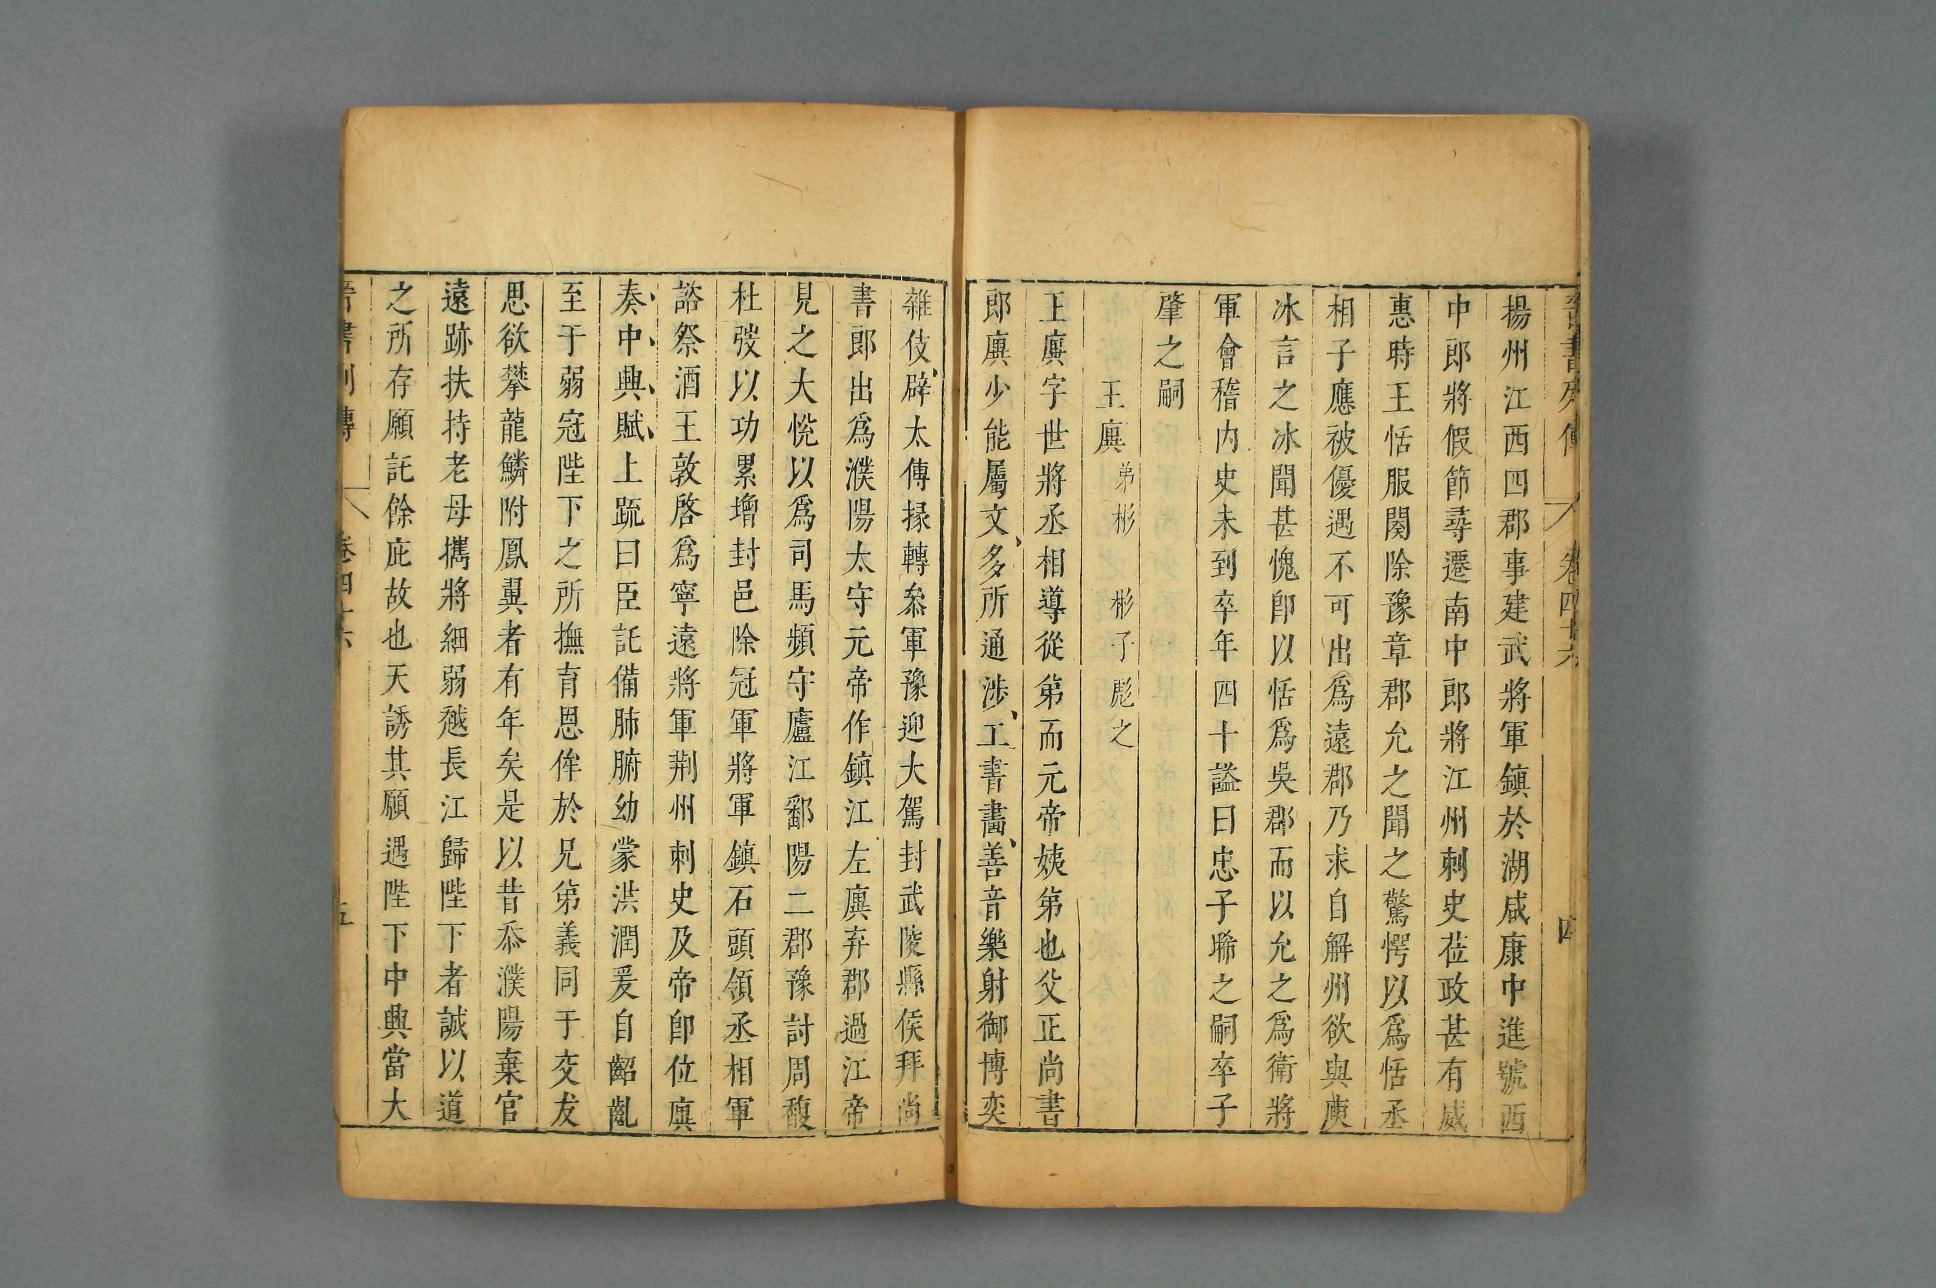 晉書列傳 卷四十六 四
揚州江西四郡事建武將軍鎮於湖咸康中進號西
中郎將假節尋遷南中郎將江州刺史莅政甚有威
惠時王恬服闋除豫章郡允之聞之驚愕以爲恬丞
相子應被優遇不可出爲遠郡乃求自解州欲與庾
冰言之冰聞甚愧卽以恬爲吳郡而以允之爲衛將
軍會稽內史未到卒年四十謚曰忠子晞之嗣卒子
肈之嗣
王廙 弟彬 彬子彪之
王廙字世將丞相導從弟而元帝姨弟也父正尚書
郎廙少能屬文、多所通涉、工書畫、善音樂射御博奕
雜伎、辟太傅掾轉叅軍豫迎大駕封武陵縣侯拜尚
書郎出爲濮陽太守元帝作鎮江左廙弃郡過江帝
見之大悅以爲司馬頻守廬江鄱陽二郡豫討周馥
杜弢以功累增封邑除冠軍將軍鎮石頭領丞相軍
諮祭酒王敦啓爲寧遠將軍荆州刺史及帝卽位廙
奏、中、興、賦、上疏曰臣託備肺腑幼蒙洪潤爰自齠齔
至于弱冠陛下之所撫育恩侔於兄弟義同于交友
思欲攀龍鱗附鳳翼者有年矣是以昔忝濮陽棄官
遠跡扶持老母攜將細弱越長江歸陛下者誠以道
之所存願託餘庇故也天誘其願遇陛下中興當大
晉書列傳 卷四十六 五